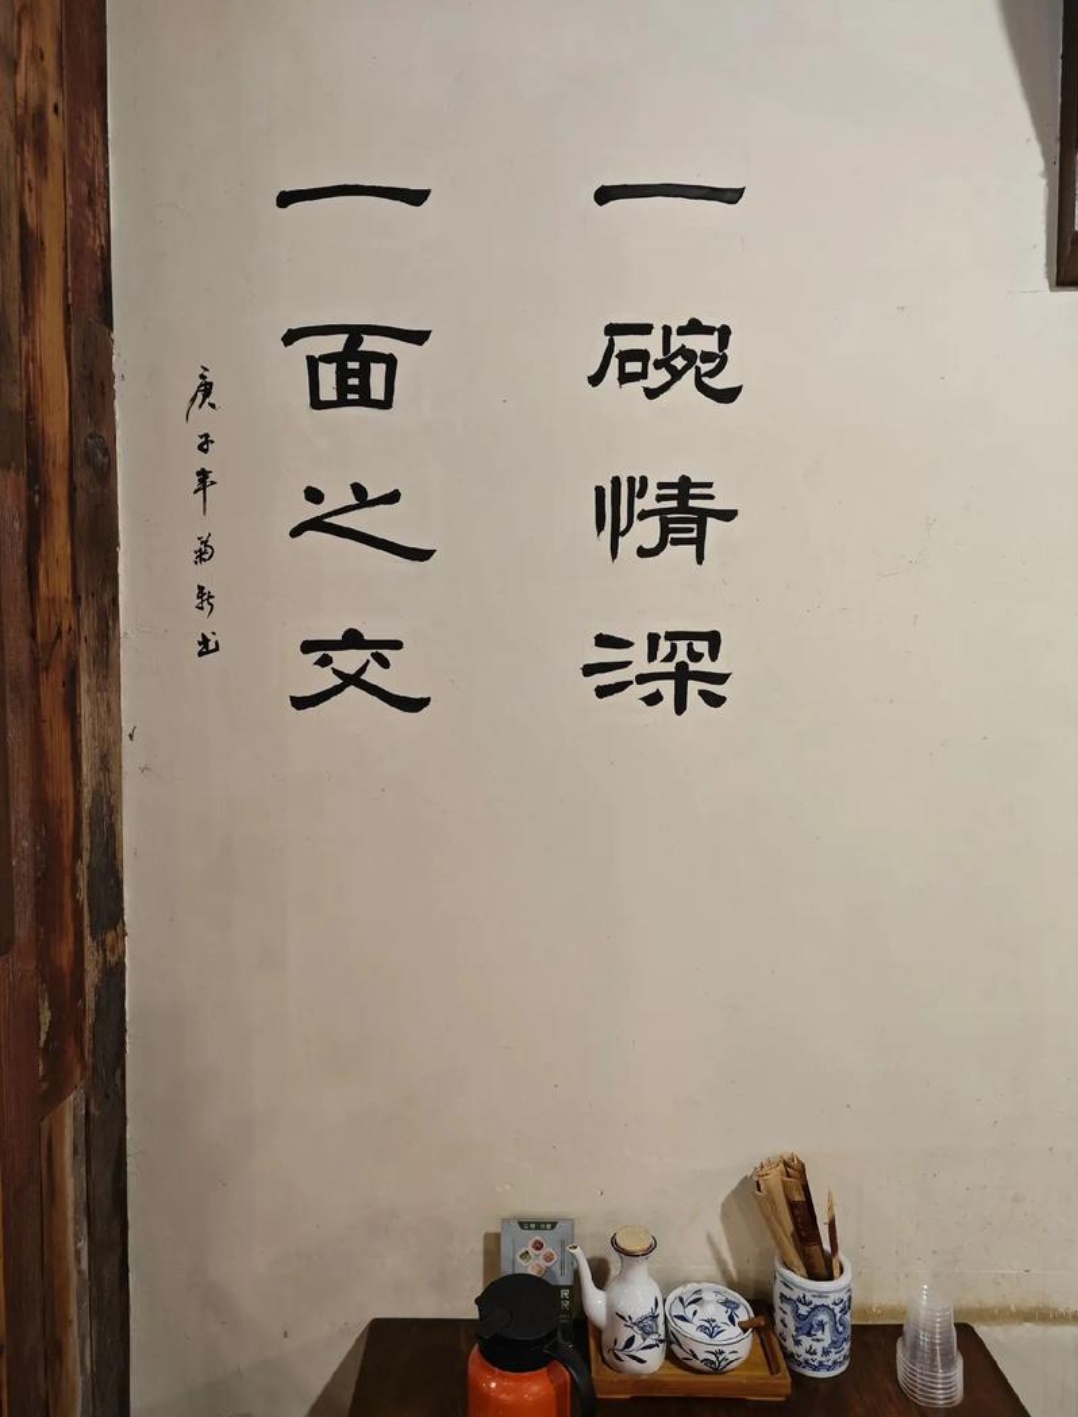 一碗情深
一面之交
庚子年菊新书